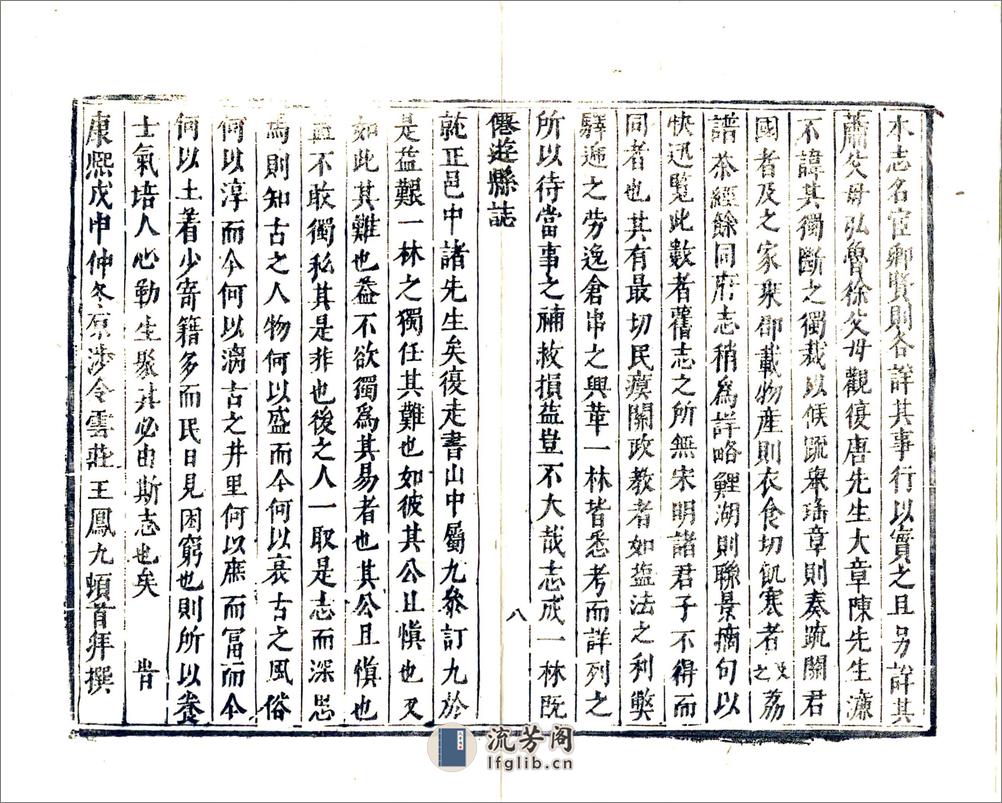 木志名宦鄉賢則各詳其事行以實之且另詳其
蕭父母弘魯徐父母觀復唐先生大章陳先生濂
不諱其獨斷之獨裁以候疏舉瑤章則奏疏關君
國者及之家乘郡載物產則衣食切飢寒者及之荔
譜茶經餘同府志稍為詳略鯉湖則聯景摘句以
快迅覽此數者舊志之所無宋明諸君子不得而
同者也其有最切民瘼關政教者如鹽法之利弊
驛遞之勞逸倉串之興革一林皆悉考而詳列之
所以待當事之補救損益豈不大哉志成一林既
僊遊縣誌
八
就正邑中諸先生矣復走書山中屬九參訂九於
是益艱一林之獨任其難也如彼其公且慎也又
如此其難也益不欲獨為其易者也其公且慎也
並不敢獨私其是非也後之人一取是志而深思
焉則知古之人物何以盛而今何以衰古之風俗
何以淳而今何以漓古之井里何以庶而富而今
何以土著少寄籍多而民日見困窮也則所以養
士氣培人心勤生聚其必由斯志也矣 旹
康熙戊申仲冬京涉令雲莊王鳳九頓首拜撰
流芳阁
lfglib.cn